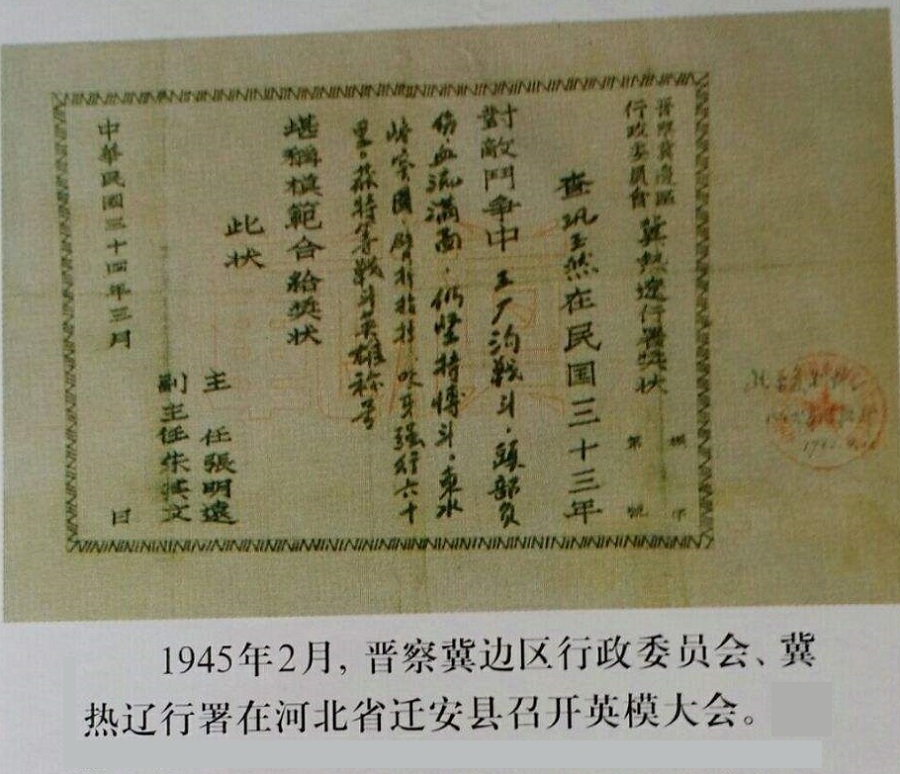 晋察冀邊區
行政委員會
冀热遼行署奖状
第 號
查巩玉然在民国三十三年
對敵鬥争中王厂沟戰斗,頭部負
伤,血流滿面,仍坚持搏斗。東水
峪突圍,臂打折折,咬牙强行六十
里。获特等戰斗英雄称号
堪稱模範合給奖状
此状
主 任張明遠
副主任朱其文
中華民國三十四年三月 日
1945年2月,晋察冀边区行政委员会、冀
热辽行署在河北省迁安县召开英模大会。